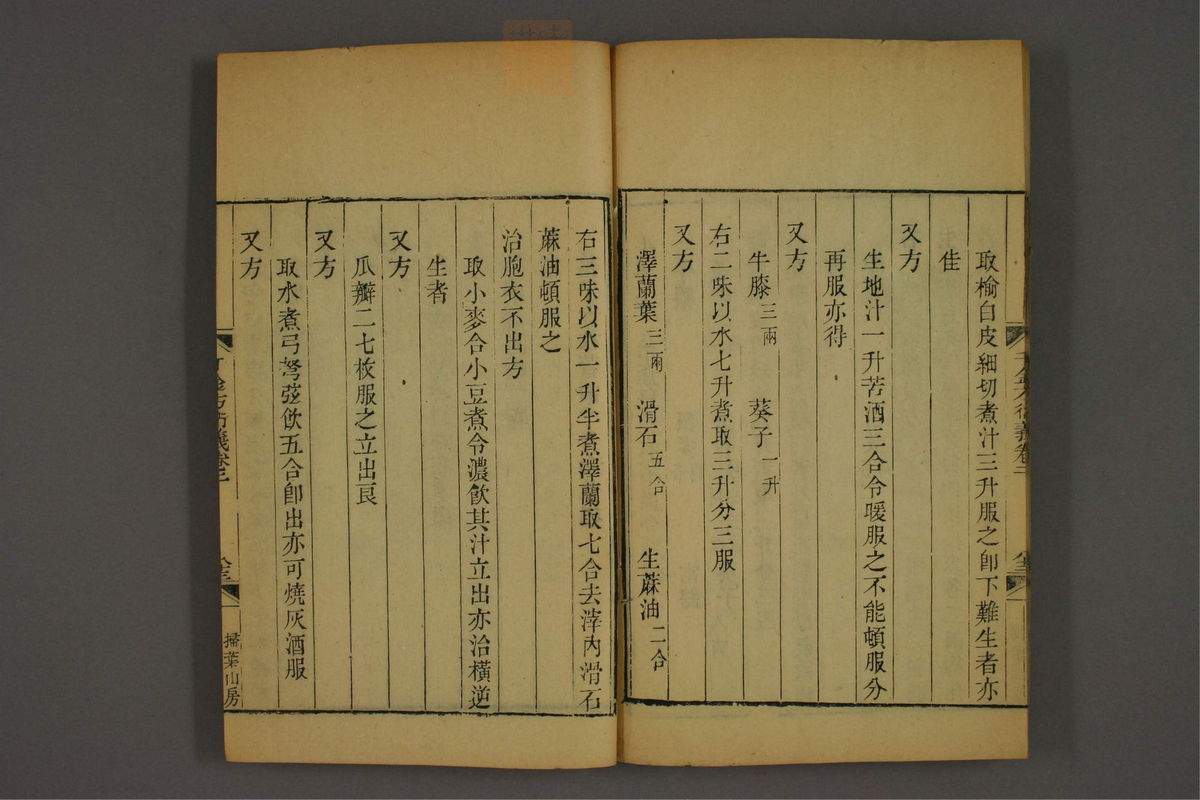 取榆白皮細切煮汁三升服之卽下難生者亦
佳
又方
生地汁一升苦酒三合令暖服之不能頓服分
再服亦得
又方
牛膝三兩 葵子一升
右二味以水七升煮取三升分三服
又方
澤蘭葉三兩 滑石五合 生蔴油二合
右三味以水一升半煮澤蘭取七合去滓內滑石
蔴油頓服之
治胞衣不出方
取小麥合小豆煮令濃飲其汁立出亦治橫逆
生者
又方
瓜瓣二七枚服之立出良
又方
取水煮弓弩弦飲五合卽出亦可燒灰酒服
又方
掃葉山房